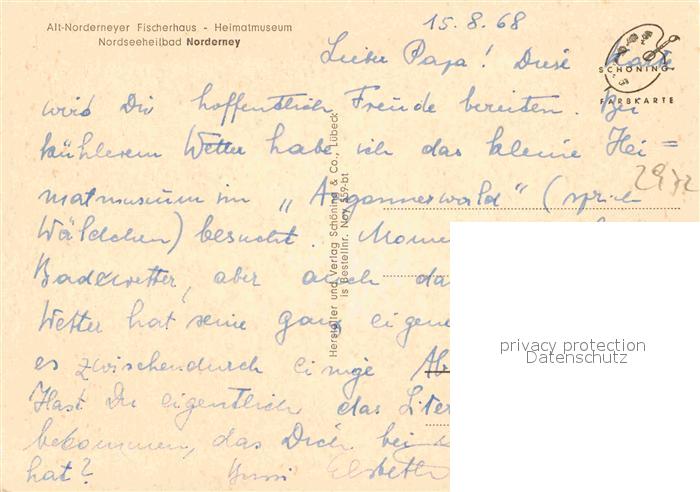 Alt-Norderneyer Fischerhaus - Heimatmuseum
Nordseeheilbad Norderney
15.8.68
SCHÖNING
FARBKARTE
Lieber Papa! Diese Karte
wird Dir hoffentlich Freude bereiten. Bei
kühlerem Wetter habe ich das kleine Hei=
matmuseum im „Argonnerwald" (sprich
Wäldchen) besucht.
Badewetter, aber auch da
Wetter hat seine ganz eigene
es zwischendurch einige
Hast Du eigentlich das
bekommen, das Dich bei
hat? Bussi Elsbeth
2972
Hersteller und Verlag Schöning & Co., Lübeck
is Bestellnr. Noy 559-bt
privacy protection
Datenschutz